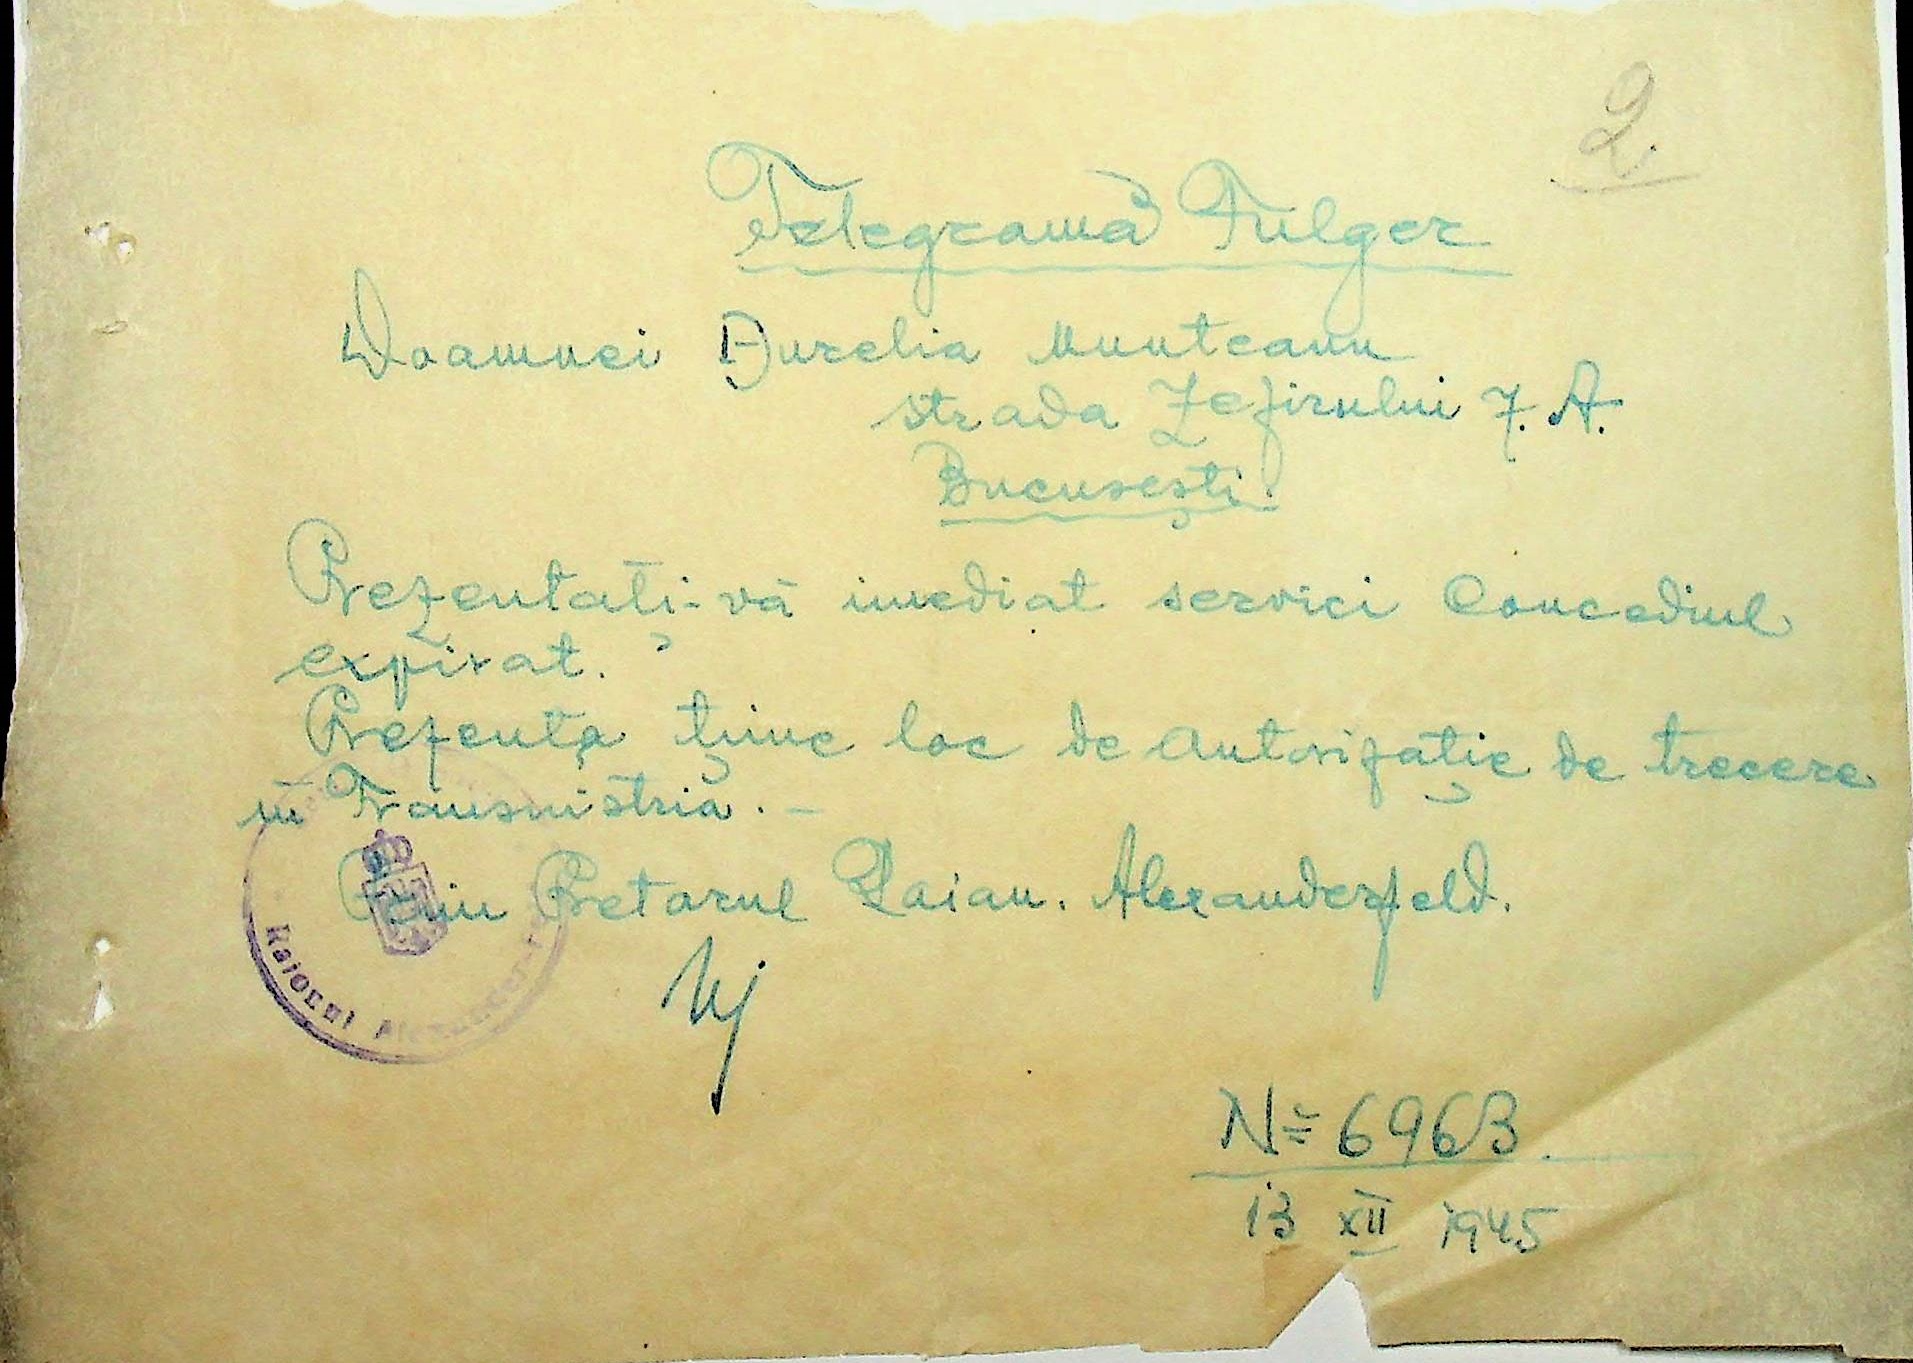 2.
Telegramă Fulger
Doamnei Aurelia Munteanu
strada Zefirului 7. A.
București.
Prezentați-vă imediat servici Concediul
expirat.
Prezenta ține loc de autorizație de trecere
în Transnistria. –
Prim Pretorul Raion. Alexanderfeld.
Raionul
№ 6963.
13 XII 1945